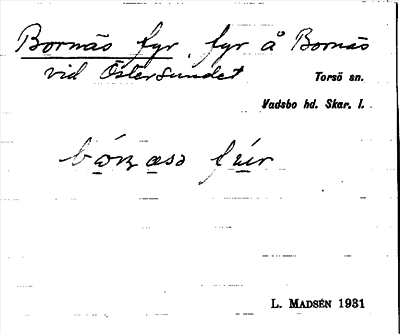 Bornäs fyr, fyr å Bornäs
vid Östersundet
Torsö sn.
Vadsbo hd. Skar. l.
fyr
L. MADSÉN 1931